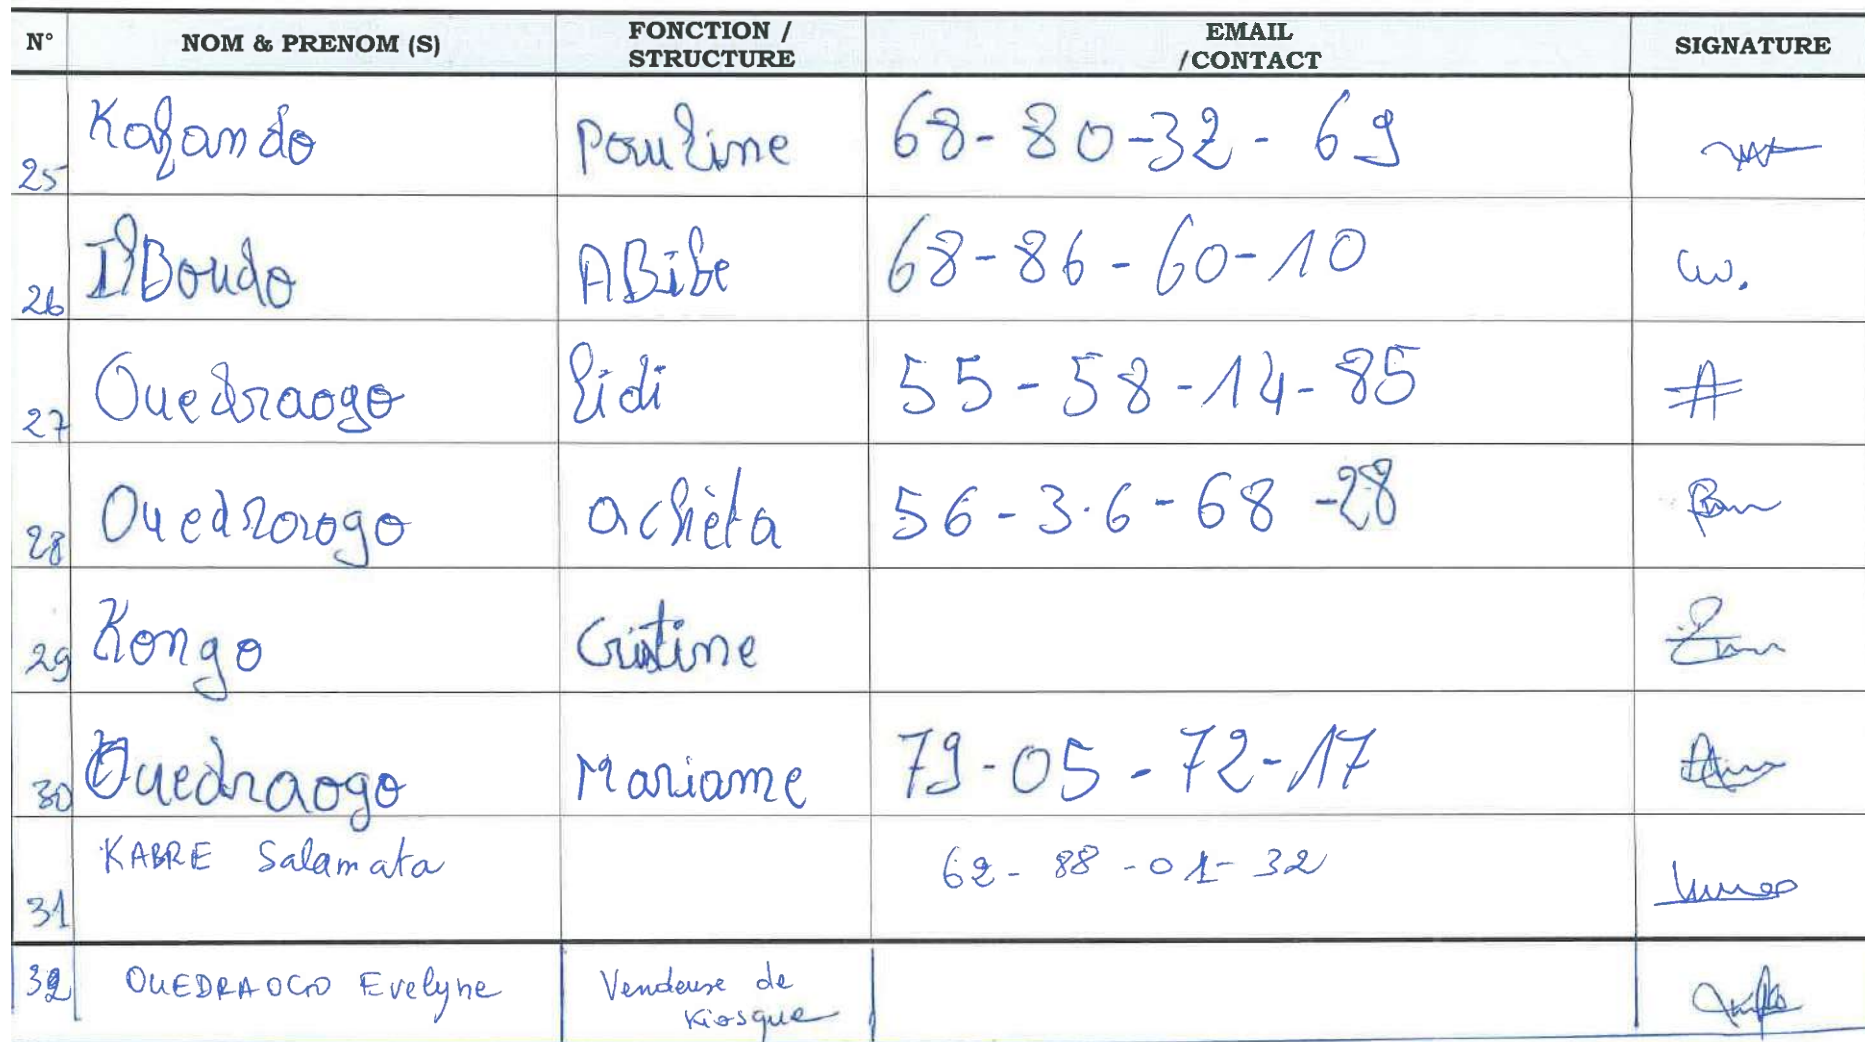 N° NOM & PRENOM (S) FONCTION / STRUCTURE EMAIL /CONTACT SIGNATURE
25 Kafando Pauline 68-80-32-69
26 IlBoudo ABibe 68-86-60-10
27 Ouedraogo lidi 55-58-14-85
28 Ouedrorogo achèta 56-3.6-68-28
29 Kongo Cristine
30 Ouedraogo Mariame 79-05-72-17
31 KABRE Salamata 62-88-01-32
32 OUEDRAOGO Evelyne Vendeuse de
Kiosque